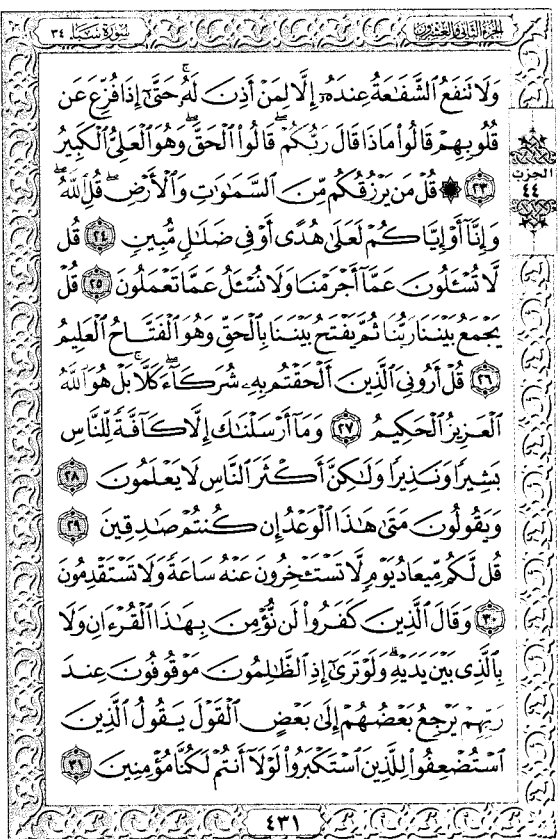 الجزء الثاني والعشرون
سورة سبإ ٣٤
وَلَا تَنفَعُ ٱلشَّفَـٰعَةُ عِندَهُۥٓ إِلَّا لِمَنْ أَذِنَ لَهُۥ ۚ حَتَّىٰٓ إِذَا فُزِّعَ عَن
قُلُوبِهِمْ قَالُوا۟ مَاذَا قَالَ رَبُّكُمْ ۖ قَالُوا۟ ٱلْحَقَّ ۖ وَهُوَ ٱلْعَلِىُّ ٱلْكَبِيرُ
٢٣ ۞ قُلْ مَن يَرْزُقُكُم مِّنَ ٱلسَّمَـٰوَٰتِ وَٱلْأَرْضِ ۖ قُلِ ٱللَّهُ ۖ
وَإِنَّآ أَوْ إِيَّاكُمْ لَعَلَىٰ هُدًى أَوْ فِى ضَلَـٰلٍ مُّبِينٍ ٢٤ قُل
لَّا تُسْـَٔلُونَ عَمَّآ أَجْرَمْنَا وَلَا نُسْـَٔلُ عَمَّا تَعْمَلُونَ ٢٥ قُلْ
يَجْمَعُ بَيْنَنَا رَبُّنَا ثُمَّ يَفْتَحُ بَيْنَنَا بِٱلْحَقِّ وَهُوَ ٱلْفَتَّاحُ ٱلْعَلِيمُ
٢٦ قُلْ أَرُونِىَ ٱلَّذِينَ أَلْحَقْتُم بِهِۦ شُرَكَآءَ ۖ كَلَّا ۚ بَلْ هُوَ ٱللَّهُ
ٱلْعَزِيزُ ٱلْحَكِيمُ ٢٧ وَمَآ أَرْسَلْنَـٰكَ إِلَّا كَآفَّةً لِّلنَّاسِ
بَشِيرًا وَنَذِيرًا وَلَـٰكِنَّ أَكْثَرَ ٱلنَّاسِ لَا يَعْلَمُونَ ٢٨
وَيَقُولُونَ مَتَىٰ هَـٰذَا ٱلْوَعْدُ إِن كُنتُمْ صَـٰدِقِينَ ٢٩
قُل لَّكُم مِّيعَادُ يَوْمٍ لَّا تَسْتَـْٔخِرُونَ عَنْهُ سَاعَةً وَلَا تَسْتَقْدِمُونَ
٣٠ وَقَالَ ٱلَّذِينَ كَفَرُوا۟ لَن نُّؤْمِنَ بِهَـٰذَا ٱلْقُرْءَانِ وَلَا
بِٱلَّذِى بَيْنَ يَدَيْهِ ۗ وَلَوْ تَرَىٰٓ إِذِ ٱلظَّـٰلِمُونَ مَوْقُوفُونَ عِندَ
رَبِّهِمْ يَرْجِعُ بَعْضُهُمْ إِلَىٰ بَعْضٍ ٱلْقَوْلَ يَقُولُ ٱلَّذِينَ
ٱسْتُضْعِفُوا۟ لِلَّذِينَ ٱسْتَكْبَرُوا۟ لَوْلَآ أَنتُمْ لَكُنَّا مُؤْمِنِينَ ٣١
الحزب
٤٤
٤٣١